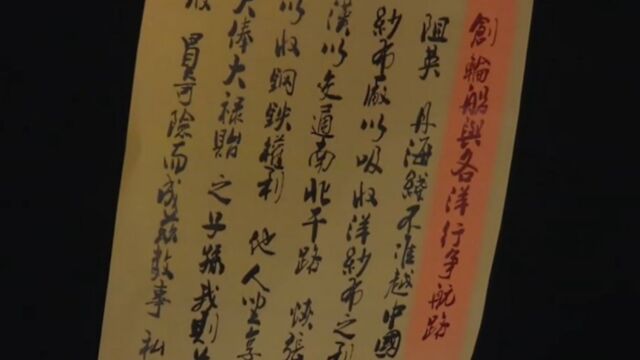 創輪船與各洋行爭航路
阻英 丹海綫不准越中國
紗布廠以吸收洋紗布之利
漢以交通南北干路 恢張
以收鋼鉄權利 他人坐享
大俸大禄貽之子孫我則
冒奇險而成茲數事 私